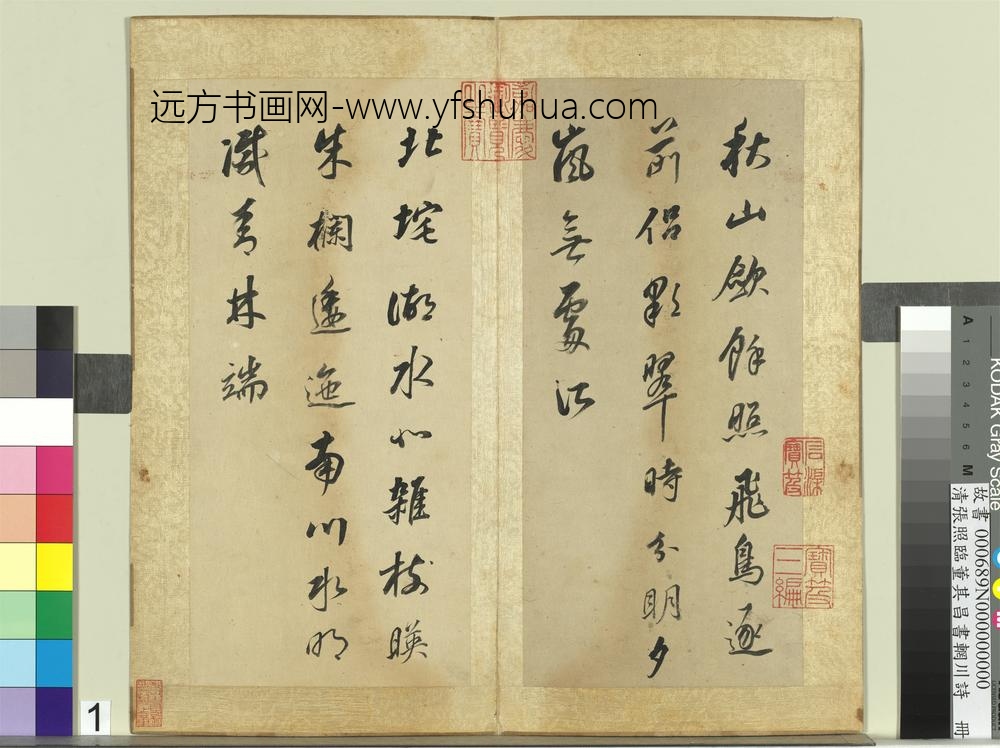 远方书画网-www.yfshuhua.com
秋山歛餘照飛鳥逐
前侣彩翠時分明夕
嵐無處所
北垞湖水北雜樹暎
朱欄逶迤南川水明
滅青林端
寶笈
三編
KODAK Gray Scale
A 1 2 3 4 5 6 M
故書 000689N000000000
清張照臨董其昌書輞川詩 冊
1